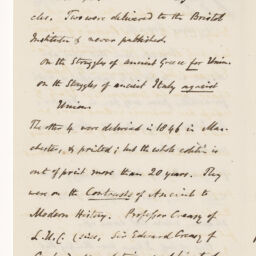 cles. Two were delivered to the Bristol
Institution & never published.
on the Struggles of ancient Greece for Union.
on the Struggles of ancient Italy against
Union.
The other 4 were delivered in 1846 in Man-
chester, & printed; but the whole edition is
out of print more than 20 years. They
were on the Contrasts of Ancient to
Modern History. Professor Creasy of
L.U.C. (since, Sir Edward Creasy of